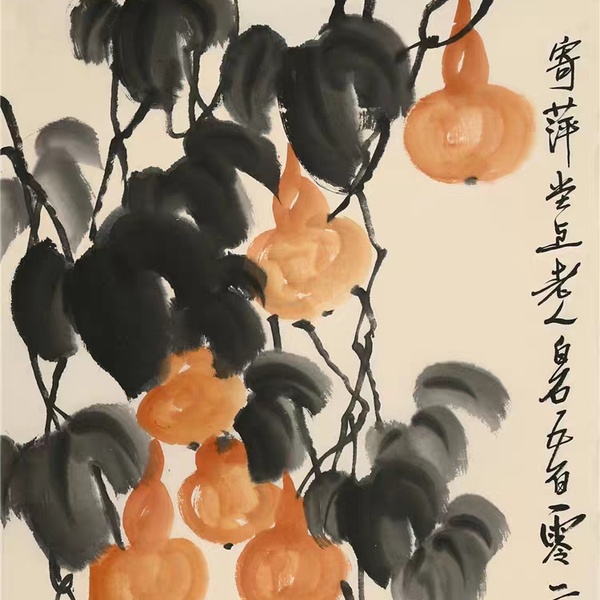 寄萍堂上老人白石五百零二